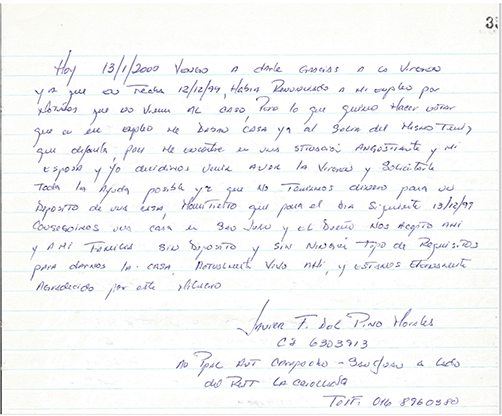 33
Hoy 13/1/2000 Vengo a darle Gracias a la Virgen
ya que en fecha 12/12/99, Había Renunciado a mi empleo por
Motivos que no vienen al caso, Pero lo que quiero Hacer notar
que en mi empleo me Daban casa ya al Salir del Mismo Tenía
que dejarla, pues me encontre en una situación Angustiante y mi
esposa y yo decidimos venir a ver la Virgen y Solicitarle
Toda la Ayuda posible ya que No Teniamos dinero para un
Deposito de una casa, que para el día Siguiente 13/12/99
Conseguimos una casa en San Juan y el Dueño Nos Acepto Ami
y A mi Familia Sin Deposito y sin Ningún tipo de Requisitos
para darnos la casa. Actualmente Vivo Ahí, y estamos Eternamente
Agradecido por este Milagro
Javier F. Del Pino Morales
CI 6303913
Av Ppal San Juan a lado
del Rest La
Telf: 016 8960380